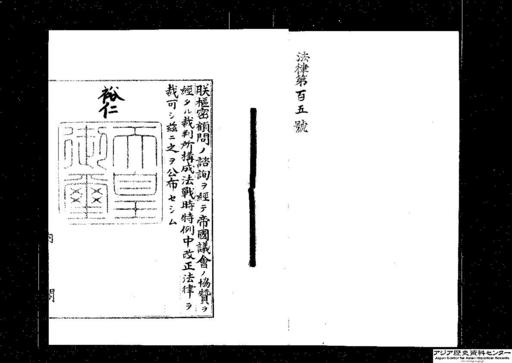 法律第百五號
朕樞密顧問ノ諮詢ヲ經テ帝國議會ノ協贊ヲ
經タル裁判所構成法戰時特例中改正法律ヲ
裁可シ茲ニ之ヲ公布セシム
裕仁
天皇御璽
内閣
アジア歴史資料センター
Japan Center for Asian Historical Records